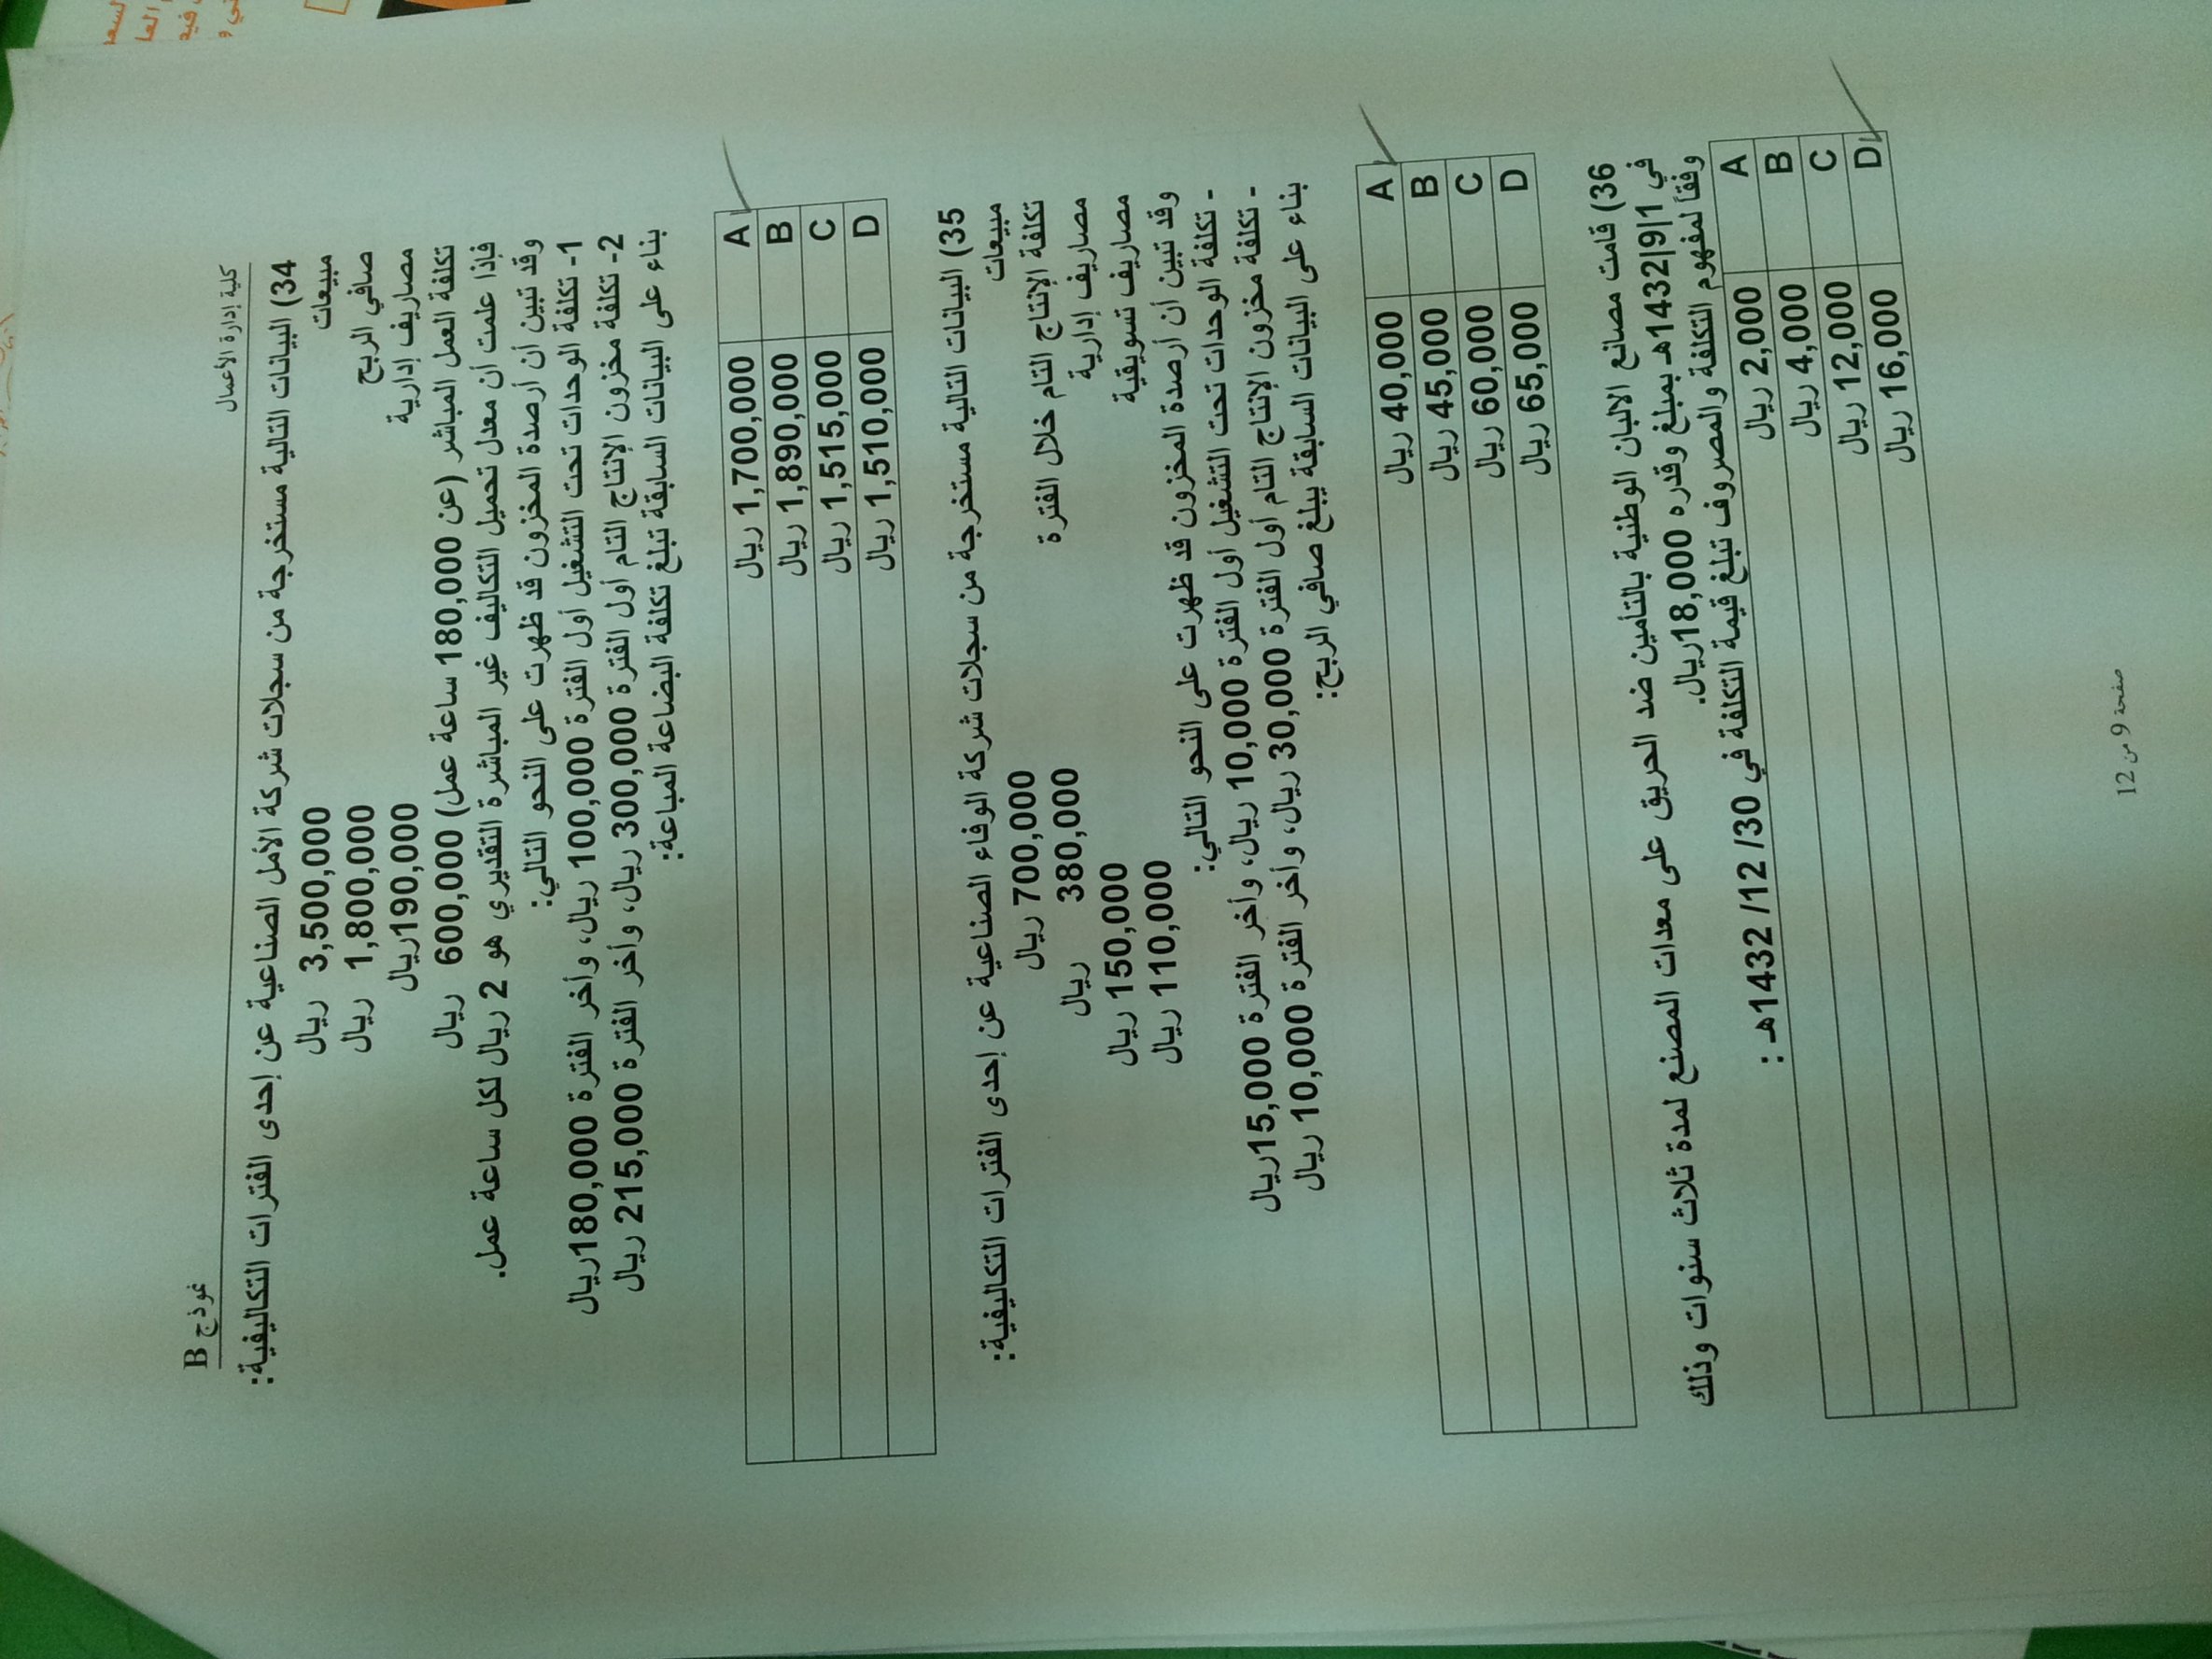 كلية إدارة الأعمال
نموذج B
34) البيانات التالية مستخرجة من سجلات شركة الأمل الصناعية عن إحدى الفترات التكاليفية:
مبيعات 3,500,000 ريال
صافي الربح 1,800,000 ريال
مصاريف إدارية 190,000ريال
تكلفة العمل المباشر (عن 180,000 ساعة عمل) 600,000 ريال
فإذا علمت أن معدل تحميل التكاليف غير المباشرة التقديري هو 2 ريال لكل ساعة عمل.
وقد تبين أن أرصدة المخزون قد ظهرت على النحو التالي:
1- تكلفة الوحدات تحت التشغيل أول الفترة 100,000 ريال، وأخر الفترة 180,000ريال
2- تكلفة مخزون الإنتاج التام أول الفترة 300,000 ريال، وأخر الفترة 215,000 ريال
بناء على البيانات السابقة تبلغ تكلفة البضاعة المباعة:
A 1,700,000 ريال
B 1,890,000 ريال
C 1,515,000 ريال
D 1,510,000 ريال
35) البيانات التالية مستخرجة من سجلات شركة الوفاء الصناعية عن إحدى الفترات التكاليفية:
مبيعات 700,000 ريال
تكلفة الإنتاج التام خلال الفترة 380,000 ريال
مصاريف إدارية 150,000 ريال
مصاريف تسويقية 110,000 ريال
وقد تبين أن أرصدة المخزون قد ظهرت على النحو التالي:
- تكلفة الوحدات تحت التشغيل أول الفترة 10,000 ريال، وأخر الفترة 15,000ريال
- تكلفة مخزون الإنتاج التام أول الفترة 30,000 ريال، وأخر الفترة 10,000 ريال
بناء على البيانات السابقة يبلغ صافي الربح:
A 40,000 ريال
B 45,000 ريال
C 60,000 ريال
D 65,000 ريال
36) قامت مصانع الالبان الوطنية بالتأمين ضد الحريق على معدات المصنع لمدة ثلاث سنوات وذلك
في 1|9|1432هـ بمبلغ وقدره 18,000ريال.
وفقاً لمفهوم التكلفة والمصروف تبلغ قيمة التكلفة في 30/ 12/ 1432هـ :
A 2,000 ريال
B 4,000 ريال
C 12,000 ريال
D 16,000 ريال
صفحة 9 من 12